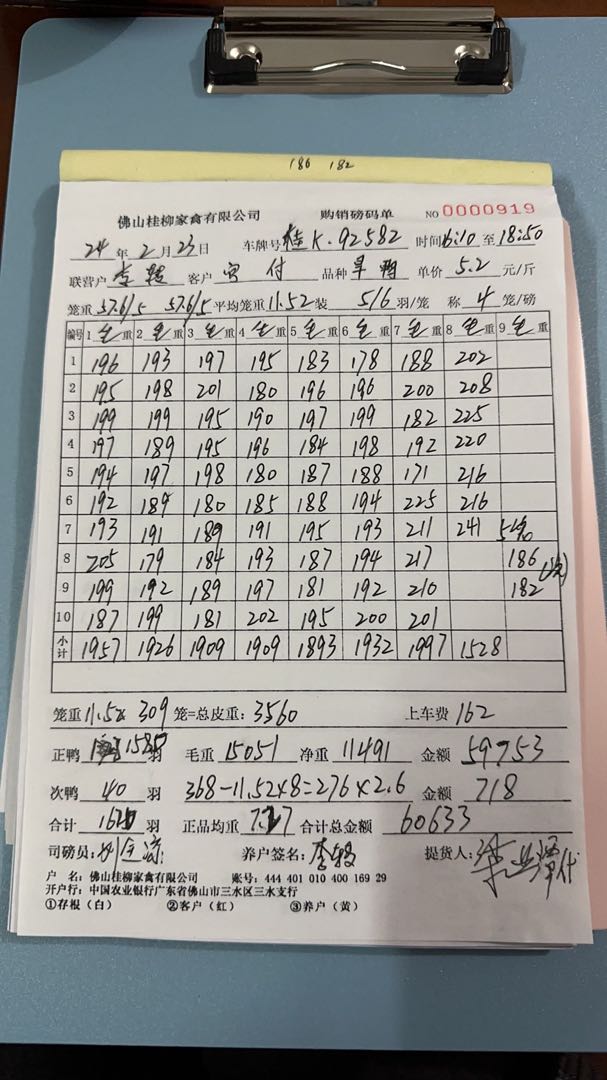 186 182
佛山桂柳家禽有限公司 购销磅码单 NO 0000919
24 年 2 月 23 日 车牌号 桂K·92582 时间 16:10 至 18:50
联营户 客户 付 品种 旱鸭 单价 5.2 元/斤
笼重 57.6/5 57.6/5 平均笼重 11.52 装 5/6 羽/笼 称 4 笼/磅
编号 1 毛 重 2 毛 重 3 毛 重 4 毛 重 5 毛 重 6 毛 重 7 毛 重 8 毛 重 9 毛 重
1 196 193 197 195 183 178 188 202
2 195 198 201 180 196 196 200 208
3 199 199 195 190 197 199 182 225
4 197 189 195 196 184 198 192 220
5 194 197 198 180 187 188 171 216
6 192 189 180 185 188 194 225 216
7 193 191 189 191 195 193 211 241
8 205 179 184 193 187 194 217 186
9 199 192 189 197 181 192 210 182
10 187 199 181 202 195 200 201
小计 1957 1926 1909 1909 1893 1932 1997 1528
笼重 11.52 309 笼=总皮重: 3560 上车费 162
正鸭 1580 羽 毛重 15051 净重 11491 金额 59753
次鸭 40 羽 368-11.52×8=276×2.6 金额 718
合计 1620 羽 正品均重 7.27 合计总金额 60633
司磅员: 养户签名: 提货人:
户 名: 佛山桂柳家禽有限公司 账号: 444 401 010 400 169 29
开户行: 中国农业银行广东省佛山市三水区三水支行
①存根（白） ②客户（红） ③养户（黄）